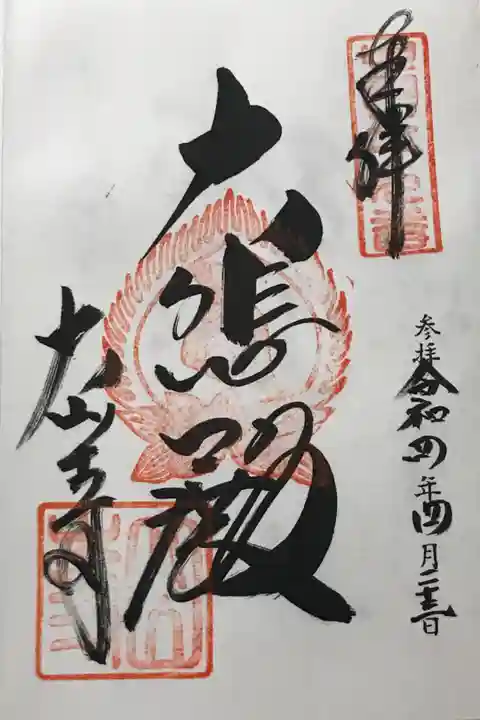 奉拝
参拝令和四年四月二十三日
大悲殿
大山寺